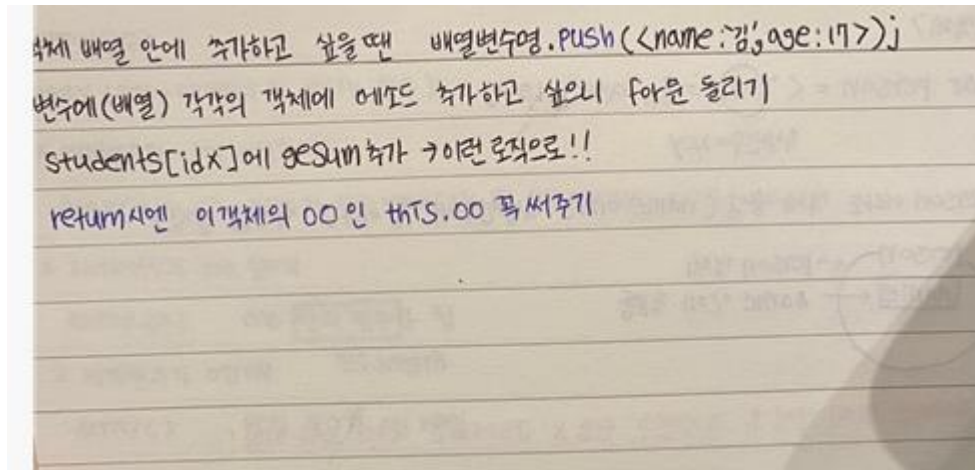 객체 배열 안에 추가하고 싶을땐 배열변수명.push(<name:'김', age:17>);
변수에(배열) 각각의 객체에 메소드 추가하고 싶으니 for문 돌리기
students[idx]에 getsum추가 → 이런 로직으로!!
return시엔 이객체의 00인 this.00 꼭 써주기